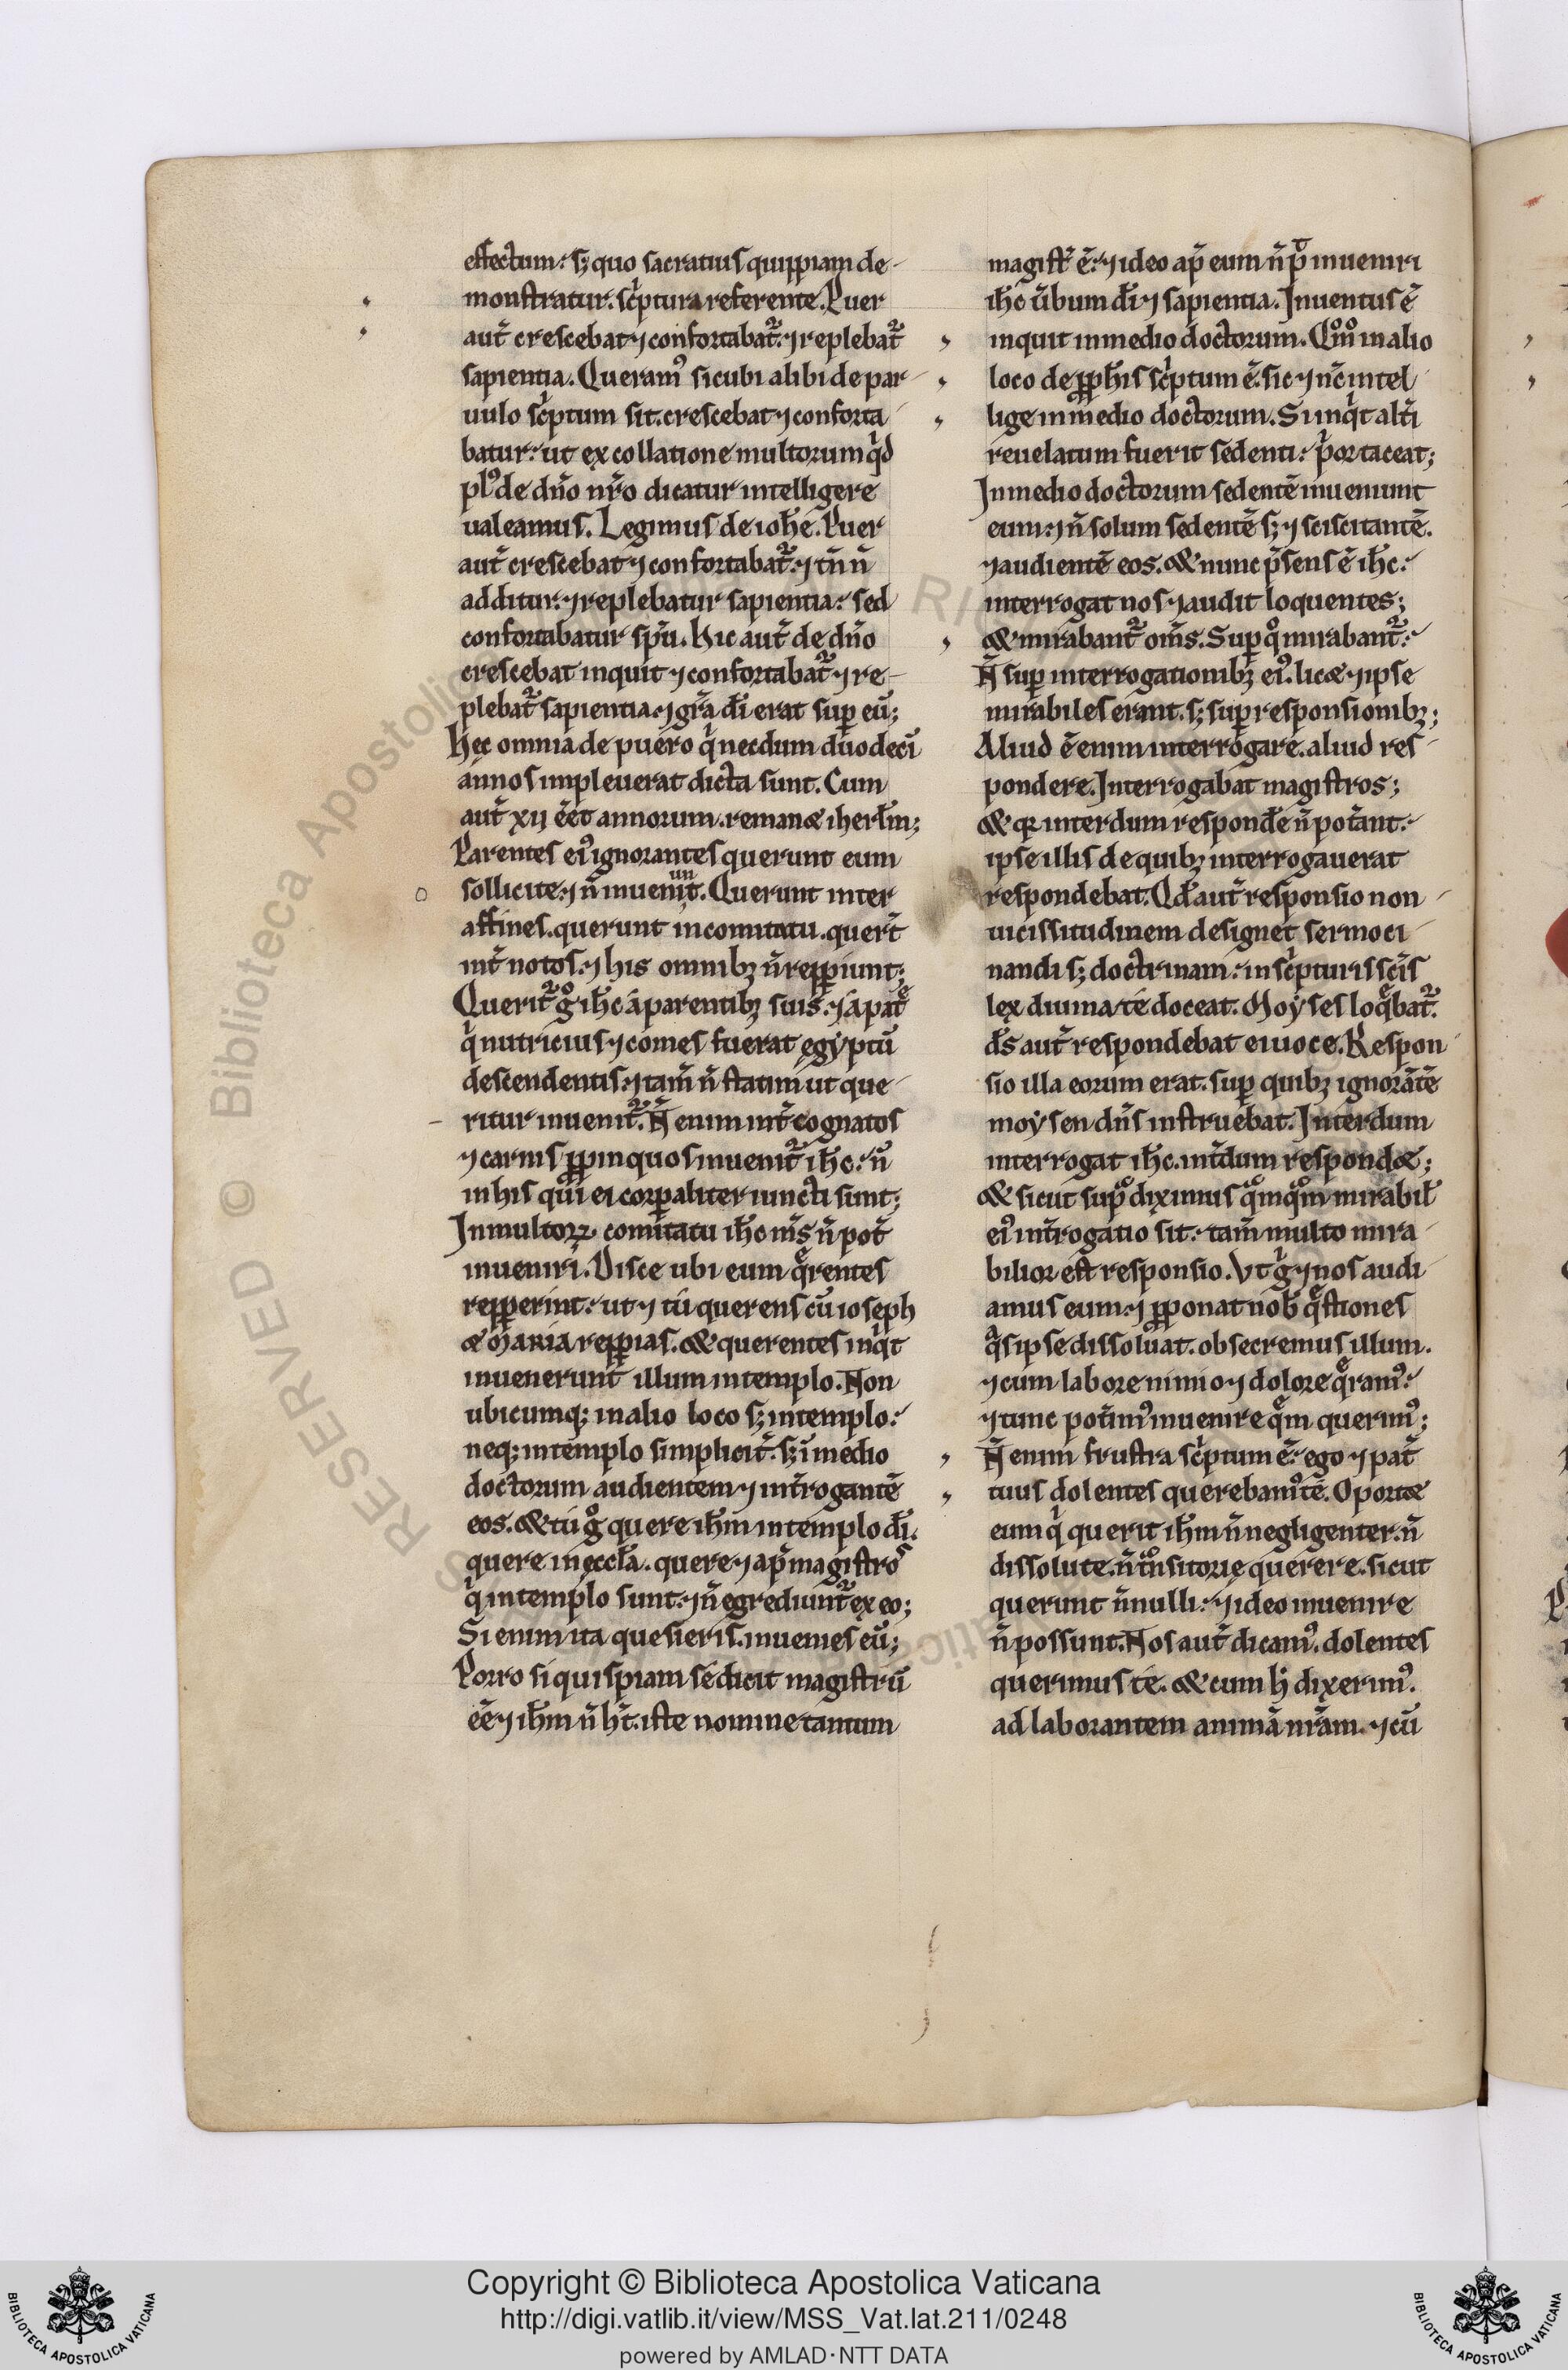 effectum: sꝫ quo sacratius quippiam de-
monstratur. sc̍ptura referente. Puer
aut̃ crescebat ⁊ confortabat᷑. ⁊ replebat᷑
sapientia. Queramꝰ sicubi alibi de par-
uulo sc̍ptum sit. crescebat ⁊ conforta-
batur: ut ex collatione multorum qͥd
plꝰ de dn̄o nr̄o dicatur intelligere
ualeamus. Legimus de ioh̄e. Puer
aut̃ crescebat ⁊ confortabat᷑. ⁊ tn̄ n̄
additur: ⁊ replebatur sapientia: sed
confortabatur sp̄u. Hic aut̃ de dn̄o
crescebat inquit ⁊ confortabat᷑ ⁊ re-
plebat᷑ sapientia. ⁊ gr̄a dī erat suꝑ eū;
Hec omnia de puero qͥ necdum duodecī
annos impleuerat dicta sunt. Cum
aut̃ xii eēt annorum. remanꝫ iherłm;
Parentes eiꝰ ignorantes querunt eum
sollicite: ⁊ n̄ inueniunt. Querunt inter
affines. querunt in comitatu. quert̃
int̃ notos. ⁊ his omnibꝫ n̄ repperiunt;
Querit᷑ gͦ ih̄c a parentibꝫ suis. ⁊ a patͤ
qͥ nutricius ⁊ comes fuerat egẏptū
descendentis: ⁊ tam̄ n̄ statim ut que-
ritur inuenit᷑. N̄ enim int̃ cognatos
⁊ carnis ꝓpinquos inuenit᷑ ih̄c: n̄
in his qui ei corꝑaliter iuncti sunt;
In multoꝝ comitatu ih̄c m̄s n̄ pot̃
inueniri. Disce ubi eum qͤrentes
repꝑerint: ut ⁊ tu querens cū ioseph
& maria repꝑias. & querentes inqͥt
inuenerunt illum in templo. Non
ubicumqꝫ in alio loco sꝫ in templo:
neqꝫ in templo simplicit̃. sꝫ ī medio
doctorum audientem ⁊ int̃rogantē
eos. & tu gͦ quere ih̄m in templo dī.
quere in eccła. quere ⁊ ap̄ magistroˢ
qͥ in templo sunt: ⁊ n̄ egrediunt᷑ ex eo;
Si enim ita quesieris. inuenies eū;
Porro si quispiam se dicit magistrū
eē ⁊ ih̄m n̄ ht̄. iste nomine tantum
magist̃ ē: ⁊ ideo ap̄ eum n̄ pͦt inueniri
ih̄c ūbum dī ⁊ sapientia. Inuentus ē
inquit in medio doctorum. Qͦmͦ in alio
loco de ꝓph̄is sc̍ptum ē. sic ⁊ nc̄ intel-
lige in medio doctorum. Si inqͥt alt̃i
reuelatum fuerit sedenti: pͥor taceat;
In medio doctorum sedentē inueniunt
eum: ⁊ n̄ solum sedentē sꝫ ⁊ sciscitantē.
⁊ audientē eos. & nunc p̄sens ē ih̄c:
interrogat nos ⁊ audit loquentes;
& mirabant᷑ om̄s. Suꝑ qͦ mirabant᷑:
N̄ suꝑ interrogationibꝫ eiꝰ. lic& ⁊ ipse
mirabiles erant. sꝫ suꝑ responsionibꝫ;
Aliud ē enim interrogare. aliud res-
pondere. Interrogabat magistros;
& qꝛ interdum respond̄e n̄ pot̃ant:
ipse illis de quibꝫ interrogauerat
respondebat. Qd̄ aut̃ responsio non
uicissitudinem designet sermoci-
nandi sꝫ doctrinam: in sc̍pturis sc̄is
lex diuina te doceat. Moẏses loqͤbat᷑.
d̄s aut̃ respondebat ei uoce. Respon-
sio illa eorum erat. suꝑ quibꝫ ignorātē
moẏsen dn̄s instruebat. Interdum
interrogat ih̄c. int̃dum respond&;
& sicut supͣ diximus qͣmqͣm mirabił
eiꝰ int̃rogatio sit: tam̄ multo mira-
bilior est responsio. Vt gͥ ⁊ nos audi-
amus eum. ⁊ ꝓponat nob̄ qͤstiones
qͣs ipse dissoluat. obsecremus illum.
⁊ cum labore nimio ⁊ dolore qͤramꝰ:
⁊ tunc pot̃imꝰ inuenire qͤm querimꝰ;
N̄ enim frustra sc̍ptum ē: ego ⁊ pat̃
tuus dolentes querebamꝰ te. Oport&
eum qͥ querit ih̄m n̄ negligenter. n̄
dissolute. n̄ tͣnsitorie querere. sicut
querunt n̄nulli: ⁊ ideo inuenire
n̄ possunt. Nos aut̃ dicamꝰ. dolentes
querimus te. & cum h̄ dixerimꝰ.
ad laborantem animā nr̄am. ⁊ cū
Copyright © Biblioteca Apostolica Vaticana
http://digi.vatlib.it/view/MSS_Vat.lat.211/0248
powered by AMLAD·NTT DATA
BIBLIOTECA APOSTOLICA VATICANA
BIBLIOTECA APOSTOLICA VATICANA